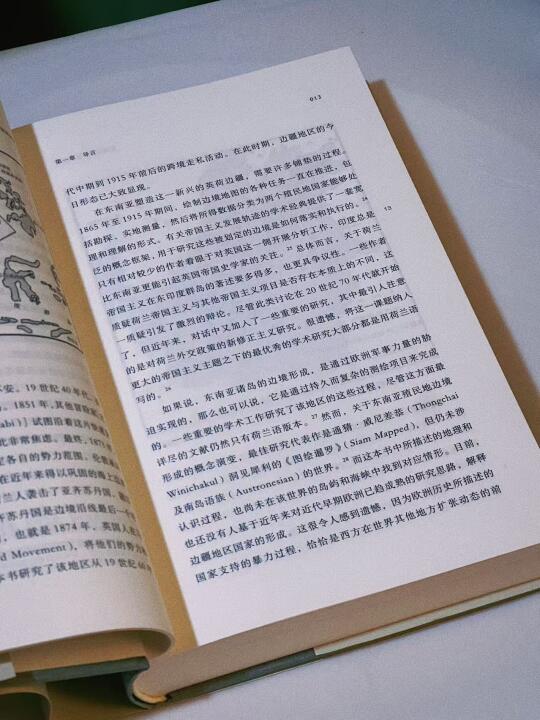 安。19世纪40年代，
1851年，其他冒险家
abi）试图沿着这片
此非常焦虑。最终，187
定各自的势力范围，伦敦
在近年来得以巩固的海上边
兰人袭击了亚齐苏丹国，
齐苏丹国是边境沿线最后一个
，也就是1874年，英国人在
d Movement），将他们的势力
本书研究了该地区从19世纪40年
013
第一章 导言
代中期到1915年前后的跨境走私活动。在此时期，边疆地区的今
日形态已大致显现。
在东南亚塑造这一新兴的英荷边疆，需要许多铺垫的过程。
1865年至1915年期间，绘制边境地图的各种任务一直在推进，包
括勘探、实地测量，然后将所得数据分类为两个殖民地国家能够处
理和理解的形式。有关帝国主义发展轨迹的学术经典提供了一套宽
泛的概念框架，用于研究这些被划定的边境是如何落实和执行的。24
只有相对较少的作者着眼于对英国这一侧开展分析工作，印度总是
比东南亚更能引起英国帝国史学家的关注。25 总体而言，关于荷兰
帝国主义在东印度群岛的著述要多得多，也更具争议性。一些作者
质疑荷兰帝国主义与其他帝国主义项目是否存在本质上的不同，这
一质疑引发了激烈的辩论。尽管此类讨论在20世纪70年代就开始
了，但近年来，对话中又加入了一些重要的研究，其中最引人注意
的是对荷兰外交政策的新修正主义研究。很遗憾，将这一课题纳入
更大的帝国主义主题之下的最优秀的学术研究大部分都是用荷兰语
写的。26
如果说，东南亚诸岛的边境形成，是通过欧洲军事力量的胁
迫实现的，那么也可以说，它是通过持久而复杂的测绘项目来完成
的。一些重要的学术工作研究了该地区的这些过程，尽管这方面最
详尽的文献仍然只有荷兰语版本。27 然而，关于东南亚殖民地边境
形成的概念演变，最佳研究代表作是通猜·威尼差恭（Thongchai
Winichakul）洞见犀利的《图绘暹罗》（Siam Mapped），但仍未涉
及南岛语族（Austronesian）的世界。28 而这本书中所描述的地理和
认识过程，也尚未在该世界的岛屿和海峡中找到对应情形。目前，
也还没有人基于近年来对近代早期欧洲已趋成熟的研究思路，解释
边疆地区国家的形成。这很令人感到遗憾，因为欧洲历史所描述的
国家支持的暴力过程，恰恰是西方在世界其他地方扩张动态的前
13